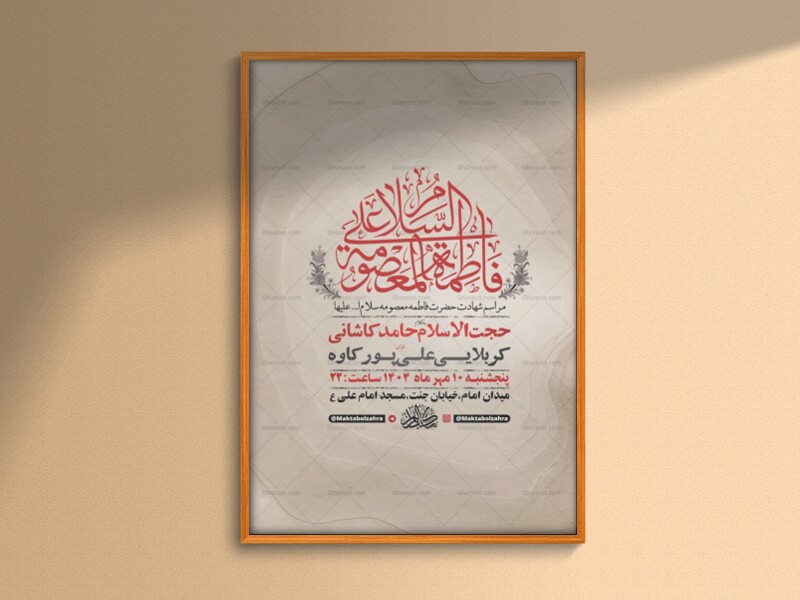 السلام علی
فاطمة المعصومة
مراسم شهادت حضرت فاطمه معصومه سلام ا... علیها
حجت الاسلام حامد کاشانی
کربلایی علی پورکاوه
پنجشنبه ۱۰ مهر ماه ۱۴۰۴ ساعت: ۲۲
میدان امام، خیابان جنت، مسجد امام علی ع
@Maktabolzahra @Maktabolzahra
Ghonoot.com